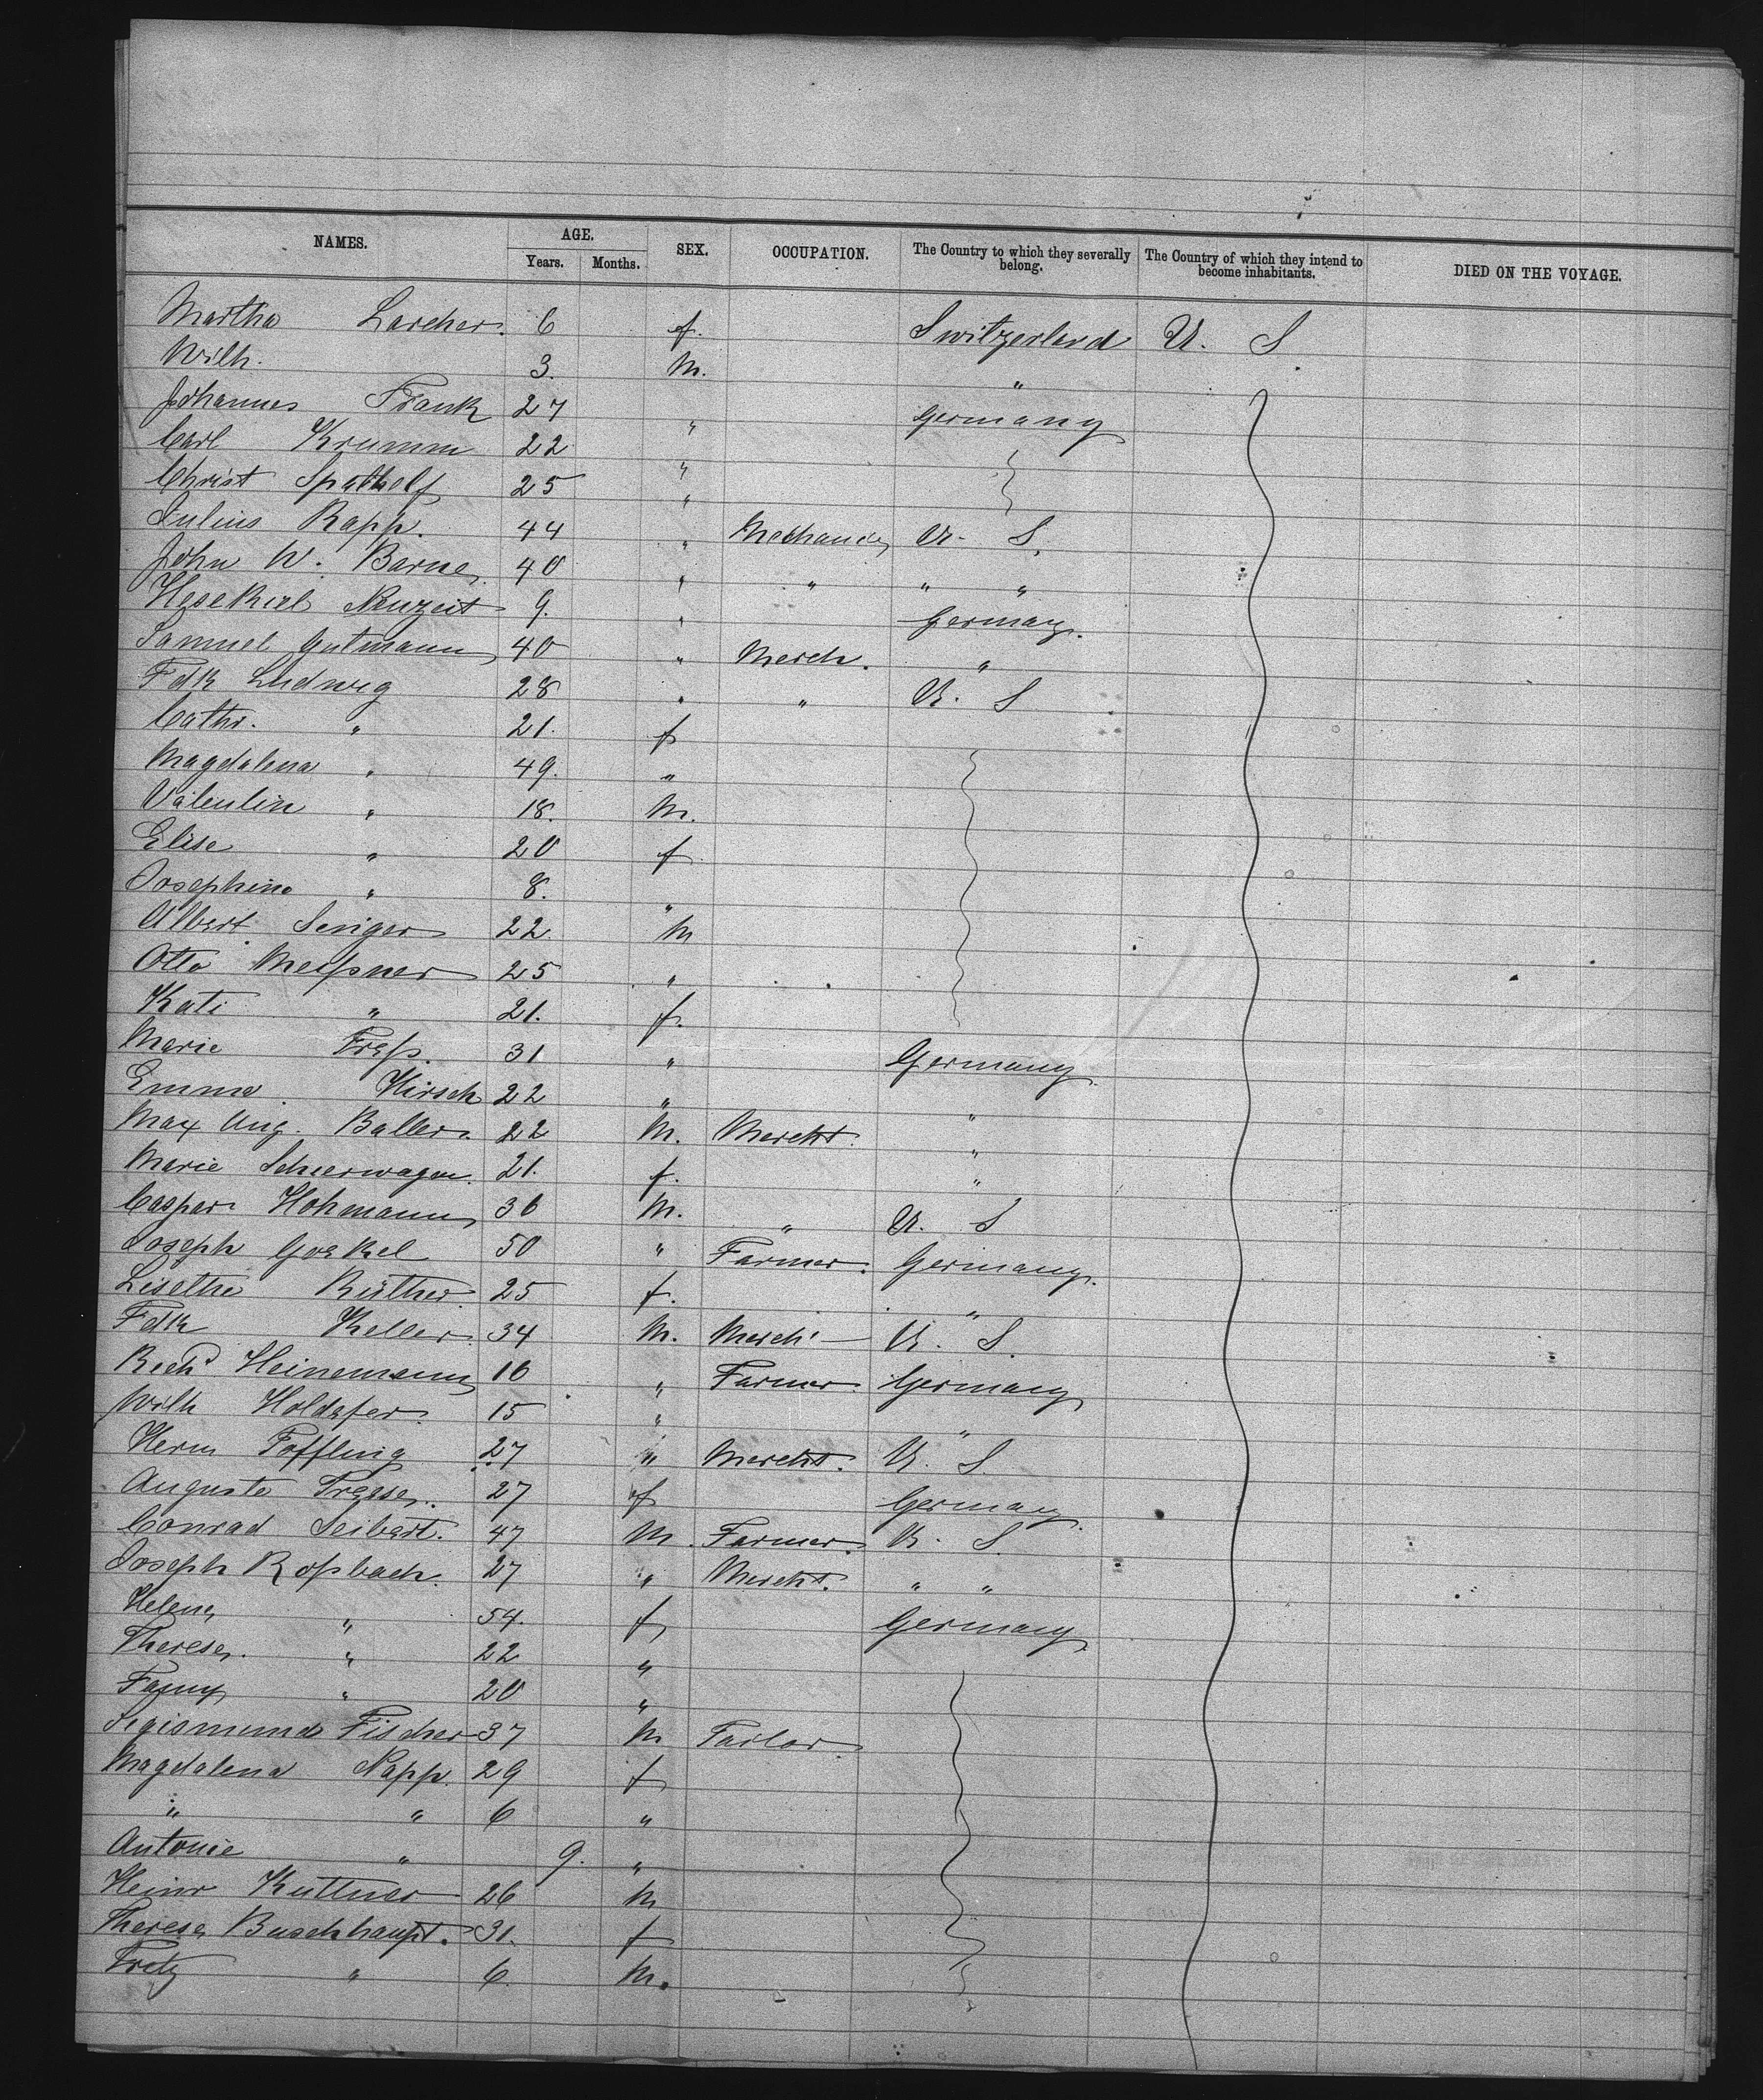 NAMES. AGE. SEX. OCCUPATION. The Country to which they severally belong. The Country of which they intend to become inhabitants. DIED ON THE VOYAGE.
Years. Months.
Martha Larcher. 6 f. Switzerland U. S.
Wilh. 3. M. "
Johannes Frank 27 " Germany
Carl Krumm 22 "
Christ Spathelf 25 "
Julius Rapp. 44 " U. S.
John W. Barne 40 " " " "
Hesekiel Neuzeit 9. " Germany.
Samuel Gutmann 40 " Merch. "
Fdk Ludwig 28 " " U. S
Cathr. " 21. f
Magdalena " 49. "
Valentin " 18. M.
Elise " 20 f
Josephine " 8. "
Albert Senger 22. M
Otto Meißner 25 "
Kati " 21. f.
Marie Freß. 31 " Germany
Emma Hirsch 22 " "
Max Aug. Baller. 22 M. Mercht. "
Marie Scheerwagen. 21. f. "
Caspar Hohmann 36 M. " U. S
Joseph Goekel 50 " Farmer. Germany.
Lisethe Rüther 25 f. "
Fdk Keller. 34 M. Merch' U. S.
Rich'd Heinemann 16 " Farmer. Germany
Wilh Holdefer. 15 " "
Herm Poffling 27 " Mercht. U. S.
Auguste 27 f Germany
Conrad Seibert. 47 M. Farmer. U. S.
Joseph Roßbach. 27 " Mercht. " "
Helena " 54. f Germany
Therese. " 22 "
Fanny " 20 "
Sigismund Fischer 37 M Tailor.
Magdalena Napp. 29 f
" " 6 "
Antonie " 9. "
Heinr Kuttner 26 M
Therese Buschhaupt. 31. f
Fritz " 6. M.